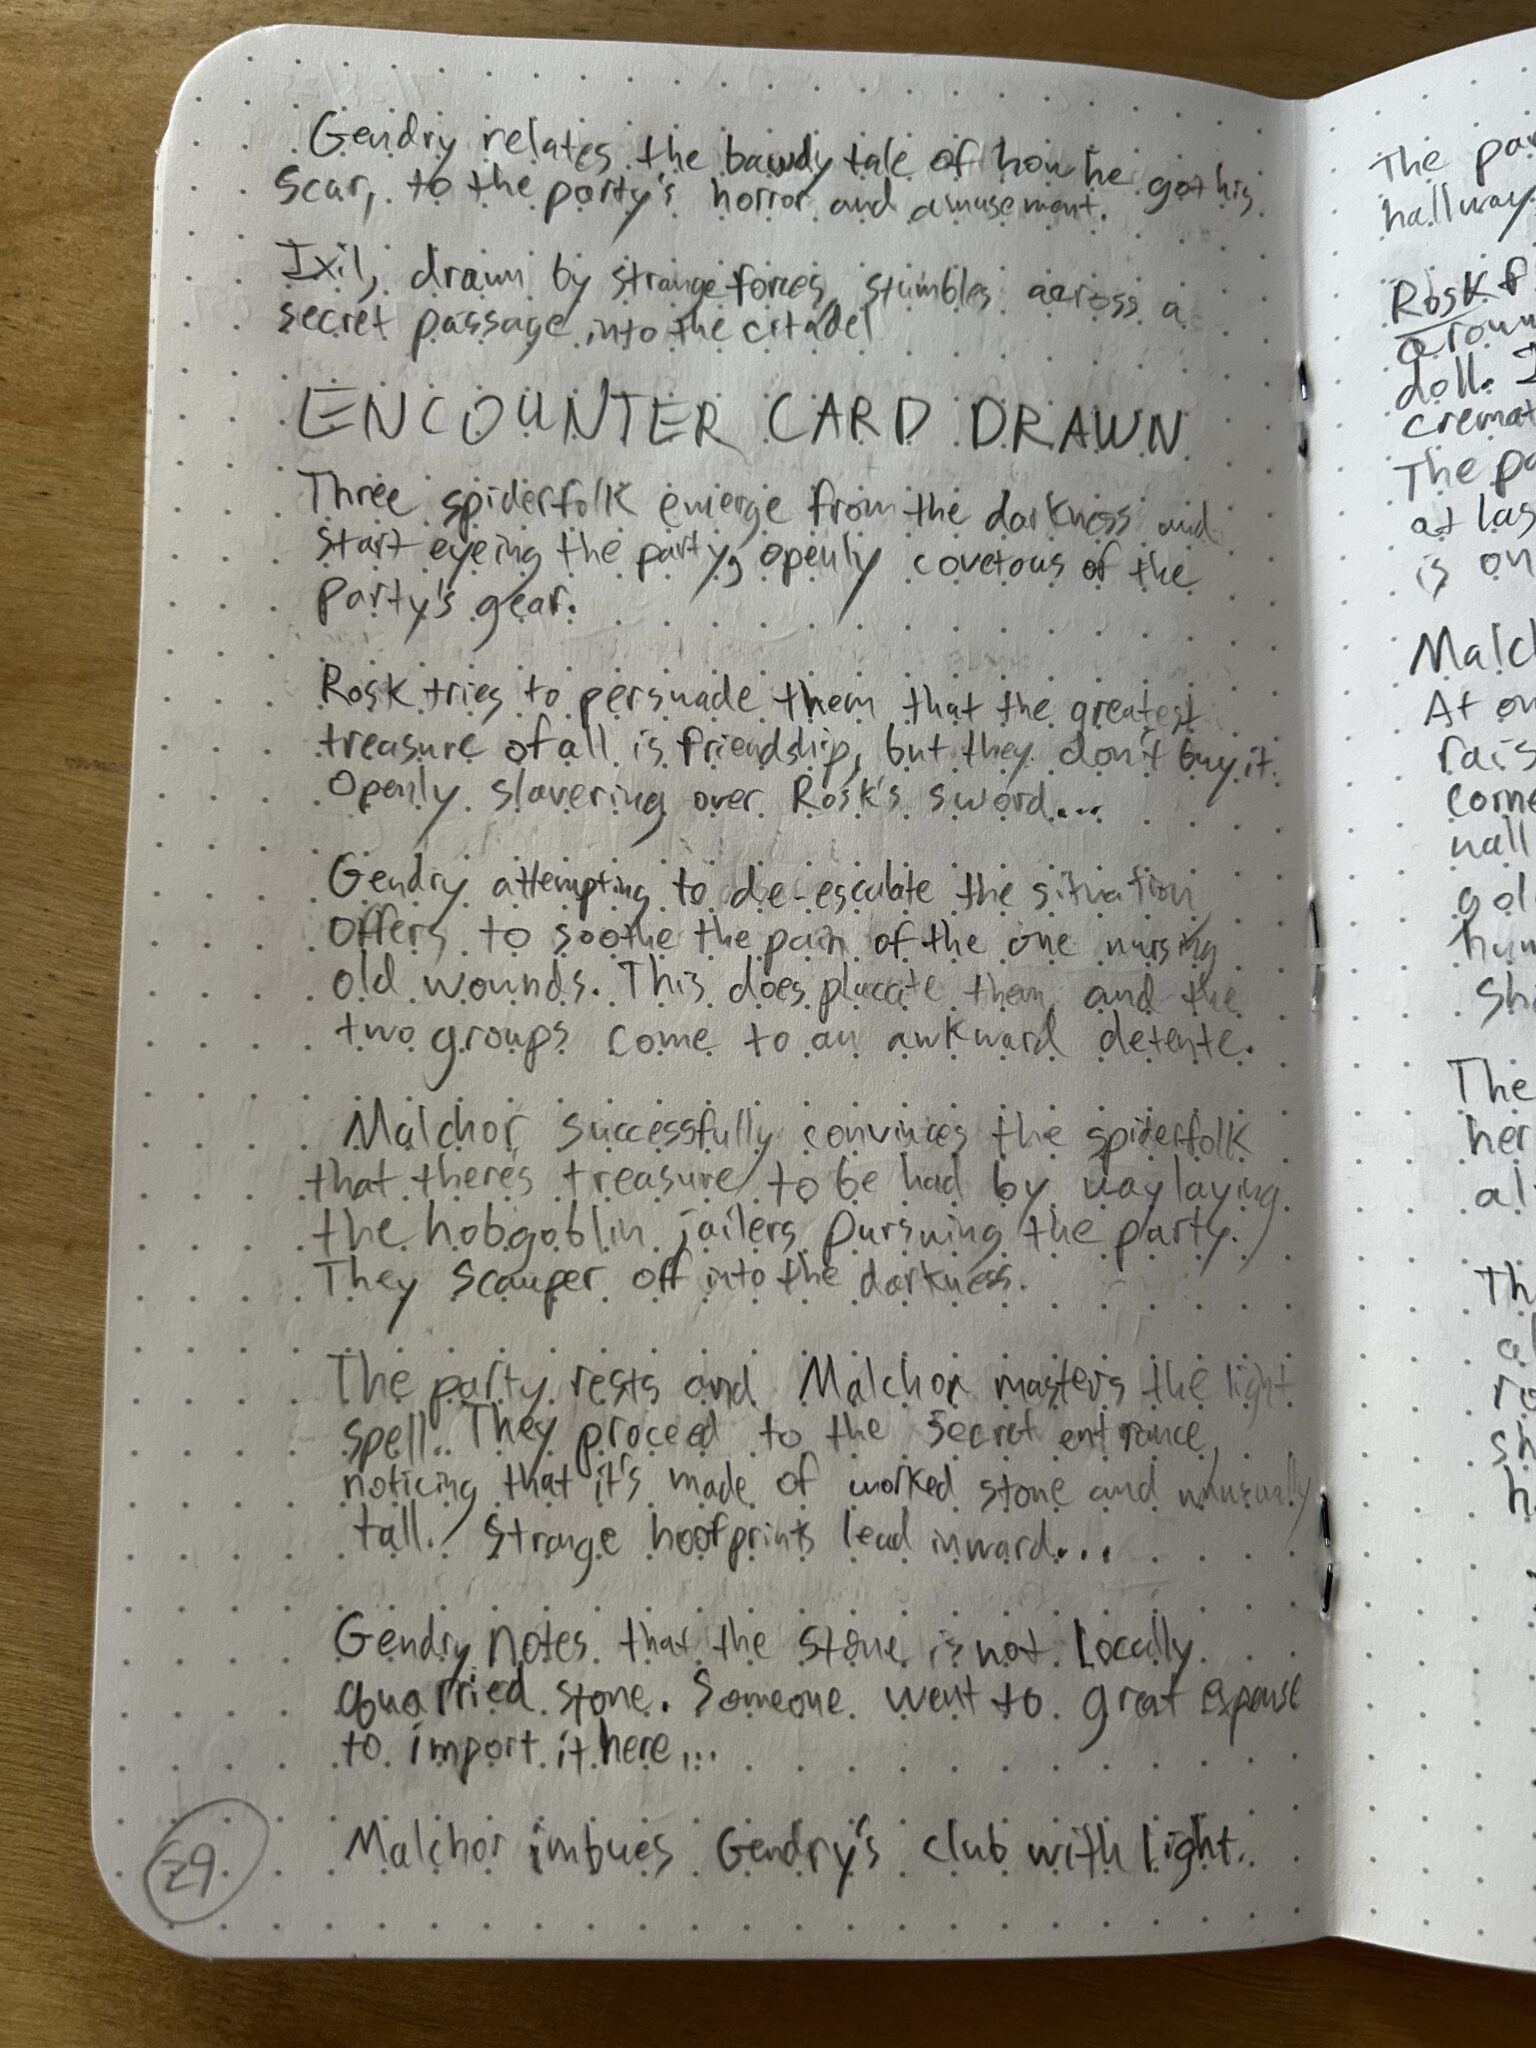 Gendry relates the bawdy tale of how he got his
scar, to the party's horror and amusement.
Ixil, drawn by strange forces, stumbles across a
secret passage into the citadel
ENCOUNTER CARD DRAWN
Three spiderfolk emerge from the darkness and
start eyeing the party, openly covetous of the
party's gear.
Rosk tries to persuade them that the greatest
treasure of all is friendship, but they don't buy it.
Openly slavering over Rosk's sword...
Gendry attempting to de-esculate the situation
offers to soothe the pain of the one nursing
old wounds. This does placate them and the
two groups come to an awkward detente.
Malchor successfully convinces the spiderfolk
that there's treasure to be had by waylaying
the hobgoblin jailers pursuing the party.
They scamper off into the darkness.
The party rests and Malchor masters the light
spell. They proceed to the secret entrance,
noticing that it's made of worked stone and unusually
tall. Strange hoofprints lead inward...
Gendry notes that the stone is not locally
quarried stone. Someone went to great expense
to import it here...
Malchor imbues Gendry's club with light.
29
The
hallway
Rosk
doll.
The
at las
is on
Malch
At on
The
her